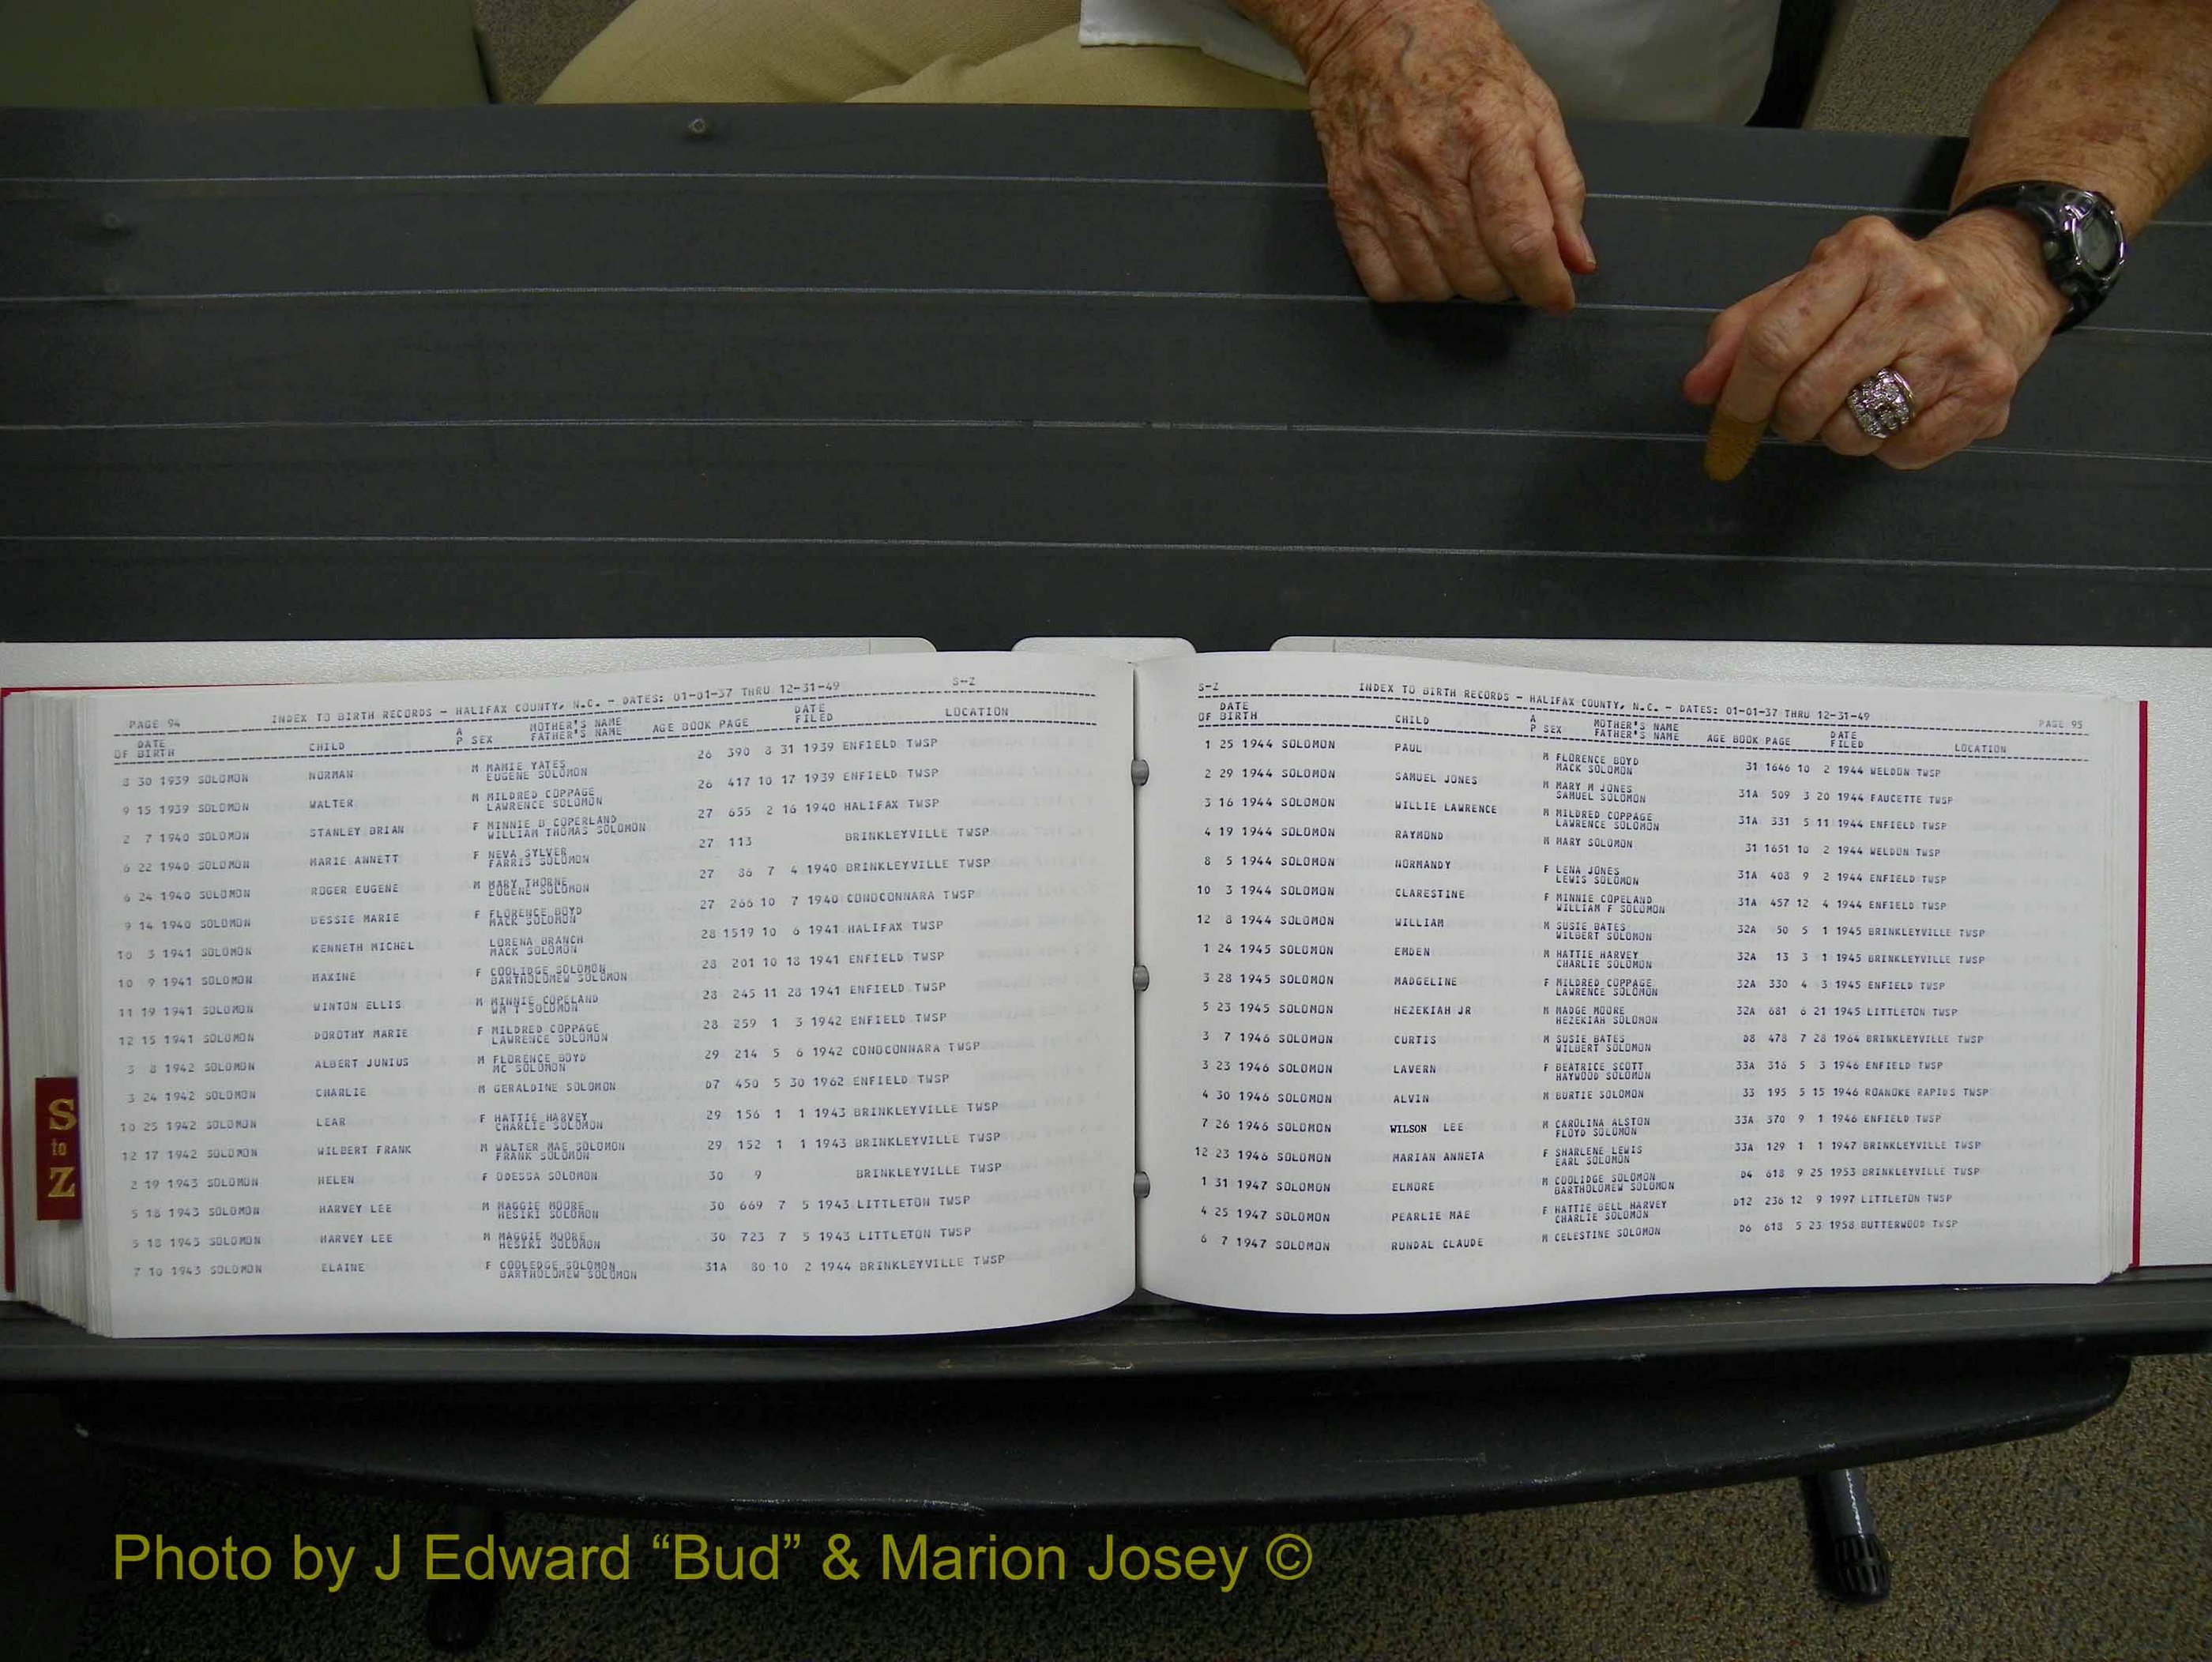 PAGE 94 INDEX TO BIRTH RECORDS - HALIFAX COUNTY, N.C. - DATES: 01-01-37 THRU 12-31-49 S-Z
DATE OF BIRTH CHILD A P SEX MOTHER'S NAME FATHER'S NAME AGE BOOK PAGE DATE FILED LOCATION
8 30 1939 SOLOMON NORMAN M MAMIE YATES 26 390 8 31 1939 ENFIELD TWSP
EUGENE SOLOMON
9 15 1939 SOLOMON WALTER M MILDRED COPPAGE 26 417 10 17 1939 ENFIELD TWSP
LAWRENCE SOLOMON
2 7 1940 SOLOMON STANLEY BRIAN F MINNIE B COPERLAND 27 655 2 16 1940 HALIFAX TWSP
WILLIAM THOMAS SOLOMON
6 22 1940 SOLOMON MARIE ANNETT F NEVA SYLVER 27 113 BRINKLEYVILLE TWSP
FARRIS SOLOMON
6 24 1940 SOLOMON ROGER EUGENE M MARY THORNE 27 86 7 4 1940 BRINKLEYVILLE TWSP
EUGENE SOLOMON
9 14 1940 SOLOMON BESSIE MARIE F FLORENCE BOYD 27 266 10 7 1940 CONOCONNARA TWSP
MACK SOLOMON
10 3 1941 SOLOMON KENNETH MICHEL LORENA BRANCH 28 1519 10 6 1941 HALIFAX TWSP
MACK SOLOMON
10 9 1941 SOLOMON MAXINE F COOLIDGE SOLOMON 28 201 10 18 1941 ENFIELD TWSP
BARTHOLOMEW SOLOMON
11 19 1941 SOLOMON WINTON ELLIS M MINNIE COPELAND 28 245 11 28 1941 ENFIELD TWSP
WM T SOLOMON
12 15 1941 SOLOMON DOROTHY MARIE F MILDRED COPPAGE 28 259 1 3 1942 ENFIELD TWSP
LAWRENCE SOLOMON
3 8 1942 SOLOMON ALBERT JUNIUS M FLORENCE BOYD 29 214 5 6 1942 CONOCONNARA TWSP
MC SOLOMON
3 24 1942 SOLOMON CHARLIE M GERALDINE SOLOMON D7 450 5 30 1962 ENFIELD TWSP
10 25 1942 SOLOMON LEAR F HATTIE HARVEY 29 156 1 1 1943 BRINKLEYVILLE TWSP
CHARLIE SOLOMON
12 17 1942 SOLOMON WILBERT FRANK M WALTER MAE SOLOMON 29 152 1 1 1943 BRINKLEYVILLE TWSP
FRANK SOLOMON
2 19 1943 SOLOMON HELEN F ODESSA SOLOMON 30 9 BRINKLEYVILLE TWSP
5 18 1943 SOLOMON HARVEY LEE M MAGGIE MOORE 30 669 7 5 1943 LITTLETON TWSP
HESIKI SOLOMON
5 18 1943 SOLOMON HARVEY LEE M MAGGIE MOORE 30 723 7 5 1943 LITTLETON TWSP
HESIKI SOLOMON
7 10 1943 SOLOMON ELAINE F COOLEDGE SOLOMON 31A 80 10 2 1944 BRINKLEYVILLE TWSP
BARTHOLOMEW SOLOMON
S
to
Z
S-Z INDEX TO BIRTH RECORDS - HALIFAX COUNTY, N.C. - DATES: 01-01-37 THRU 12-31-49 PAGE 95
DATE OF BIRTH CHILD A P SEX MOTHER'S NAME FATHER'S NAME AGE BOOK PAGE DATE FILED LOCATION
1 25 1944 SOLOMON PAUL M FLORENCE BOYD 31 1646 10 2 1944 WELDON TWSP
MACK SOLOMON
2 29 1944 SOLOMON SAMUEL JONES M MARY M JONES 31A 509 3 20 1944 FAUCETTE TWSP
SAMUEL SOLOMON
3 16 1944 SOLOMON WILLIE LAWRENCE M MILDRED COPPAGE 31A 331 5 11 1944 ENFIELD TWSP
LAWRENCE SOLOMON
4 19 1944 SOLOMON RAYMOND M MARY SOLOMON 31 1651 10 2 1944 WELDON TWSP
8 5 1944 SOLOMON NORMANDY F LENA JONES 31A 408 9 2 1944 ENFIELD TWSP
LEWIS SOLOMON
10 3 1944 SOLOMON CLARESTINE F MINNIE COPELAND 31A 457 12 4 1944 ENFIELD TWSP
WILLIAM F SOLOMON
12 8 1944 SOLOMON WILLIAM M SUSIE BATES 32A 50 5 1 1945 BRINKLEYVILLE TWSP
WILBERT SOLOMON
1 24 1945 SOLOMON EMDEN M HATTIE HARVEY 32A 13 3 1 1945 BRINKLEYVILLE TWSP
CHARLIE SOLOMON
3 28 1945 SOLOMON MADGELINE F MILDRED COPPAGE 32A 330 4 3 1945 ENFIELD TWSP
LAWRENCE SOLOMON
5 23 1945 SOLOMON HEZEKIAH JR M MADGE MOORE 32A 681 6 21 1945 LITTLETON TWSP
HEZEKIAH SOLOMON
3 7 1946 SOLOMON CURTIS M SUSIE BATES D8 478 7 28 1964 BRINKLEYVILLE TWSP
WILBERT SOLOMON
3 23 1946 SOLOMON LAVERN F BEATRICE SCOTT 33A 316 5 3 1946 ENFIELD TWSP
HAYWOOD SOLOMON
4 30 1946 SOLOMON ALVIN M BURTIE SOLOMON 33 195 5 15 1946 ROANOKE RAPIDS TWSP
7 26 1946 SOLOMON WILSON LEE M CAROLINA ALSTON 33A 370 9 1 1946 ENFIELD TWSP
FLOYD SOLOMON
12 23 1946 SOLOMON MARIAN ANNETA F SHARLENE LEWIS 33A 129 1 1 1947 BRINKLEYVILLE TWSP
EARL SOLOMON
1 31 1947 SOLOMON ELMORE M COOLIDGE SOLOMON D4 618 9 25 1953 BRINKLEYVILLE TWSP
BARTHOLOMEW SOLOMON
4 25 1947 SOLOMON PEARLIE MAE F HATTIE BELL HARVEY D12 236 12 9 1997 LITTLETON TWSP
CHARLIE SOLOMON
6 7 1947 SOLOMON RUNDAL CLAUDE M CELESTINE SOLOMON D6 618 5 23 1958 BUTTERWOOD TWSP
Photo by J Edward “Bud” & Marion Josey ©